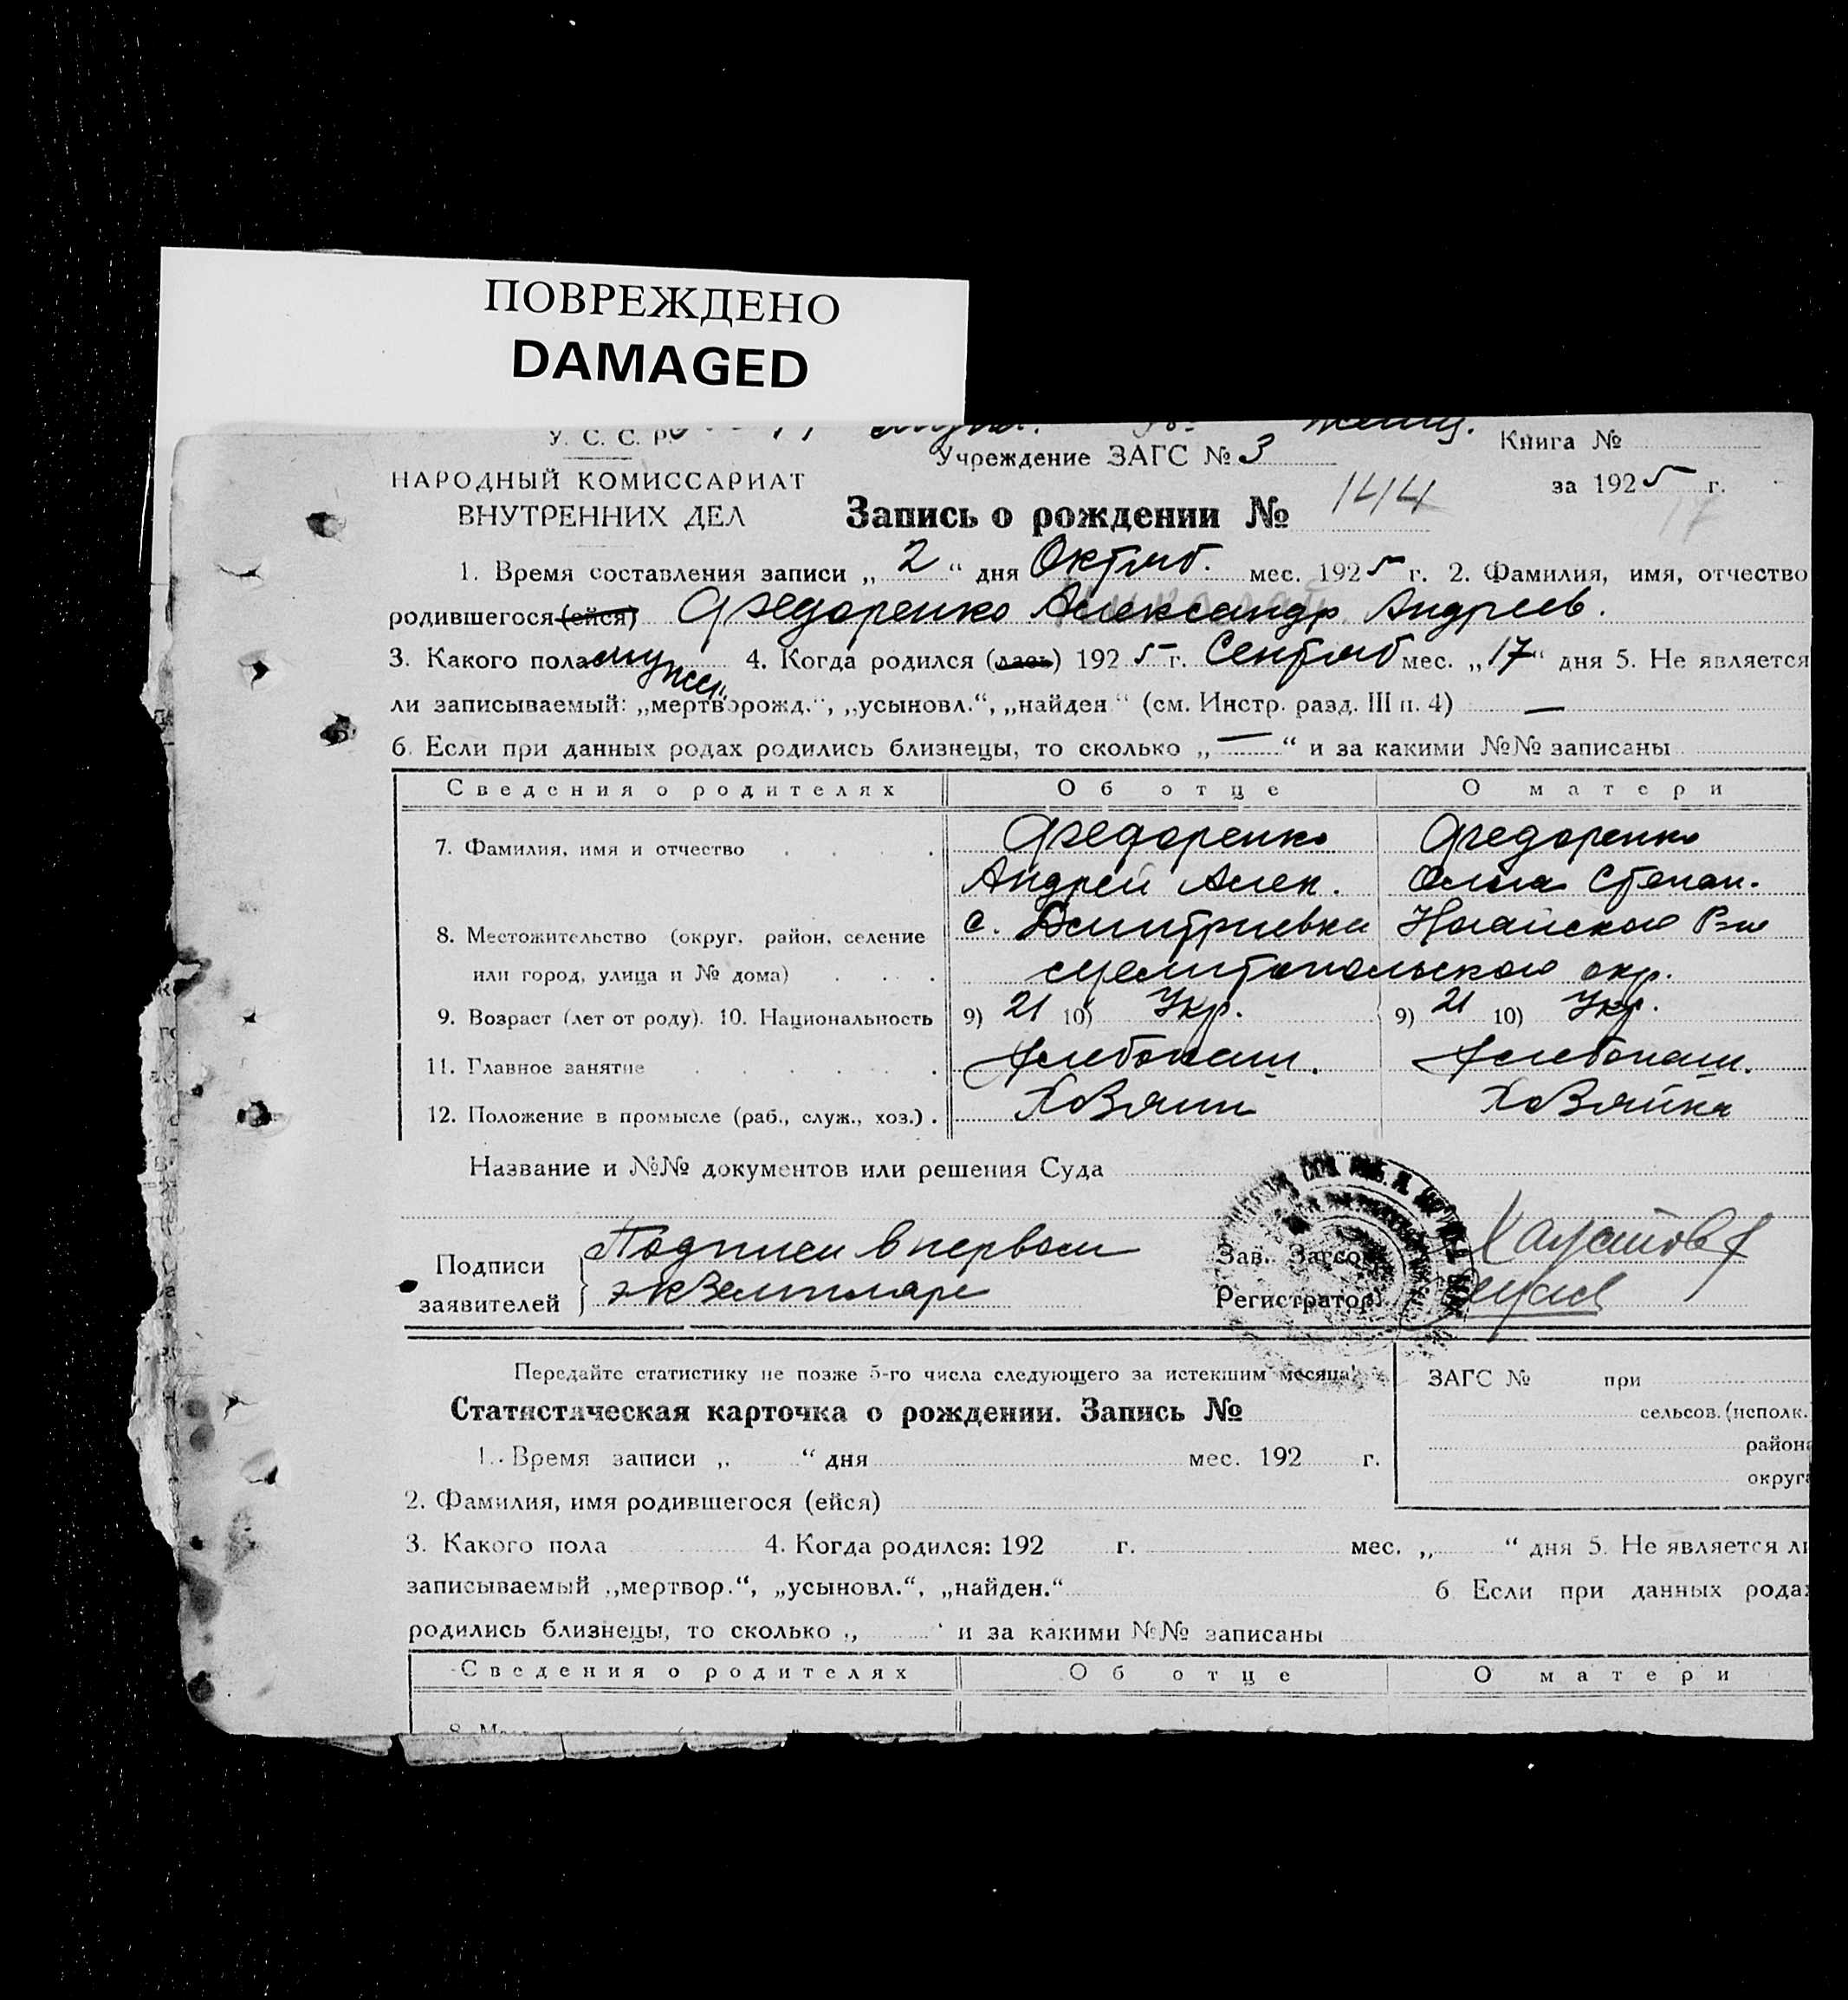 ПОВРЕЖДЕНО
DAMAGED
У. С. С. Р.
Учреждение ЗАГС № 3
Книга №
НАРОДНЫЙ КОМИССАРИАТ
за 1925 г.
ВНУТРЕННИХ ДЕЛ
Запись о рождении № 144
1. Время составления записи „ 2 “ дня Октяб. мес. 1925 г. 2. Фамилия, имя, отчество
родившегося (ейся) Федоренко Александр Андреев.
3. Какого пола муж. 4. Когда родился (лась) 1925 г. Сентяб мес. „17“ дня 5. Не является
ли записываемый: „мертворожд.“, „усыновл.“, „найден“ (см. Инстр. разд. III п. 4) —
6. Если при данных родах родились близнецы, то сколько „—“ и за какими №№ записаны
Сведения о родителях Об отце О матери
7. Фамилия, имя и отчество Федоренко Федоренко
Андрей Алек. Степан.
8. Местожительство (округ, район, селение с. Дмитриевка Ногайского
или город, улица и № дома) Мелитопольского окр.
9. Возраст (лет от роду). 10. Национальность 9) 21 10) Укр. 9) 21 10) Укр.
11. Главное занятие Хлебопаш. Хлебопаш.
12. Положение в промысле (раб., служ., хоз.) Хозяин Хозяйка
Название и №№ документов или решения Суда
Подписи Подписи в первом Зав. Загсом
заявителей экземпляре Регистратор
Передайте статистику не позже 5-го числа следующего за истекшим месяца!
Статистическая карточка о рождении. Запись №
ЗАГС № при
сельсов. (исполк.
района
округа
1. Время записи „ “ дня мес. 192 г.
2. Фамилия, имя родившегося (ейся)
3. Какого пола 4. Когда родился: 192 г. мес. „ “ дня 5. Не является ли
записываемый „мертвор.“, „усыновл.“, „найден.“ 6 Если при данных родах
родились близнецы, то сколько „ “ и за какими №№ записаны
Сведения о родителях Об отце О матери